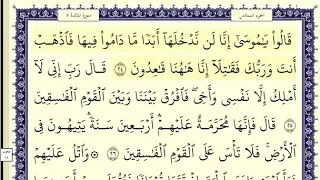 الجزء السادس
سورة المائدة ٥
قَالُوا۟ يَـٰمُوسَىٰٓ إِنَّا لَن نَّدْخُلَهَآ أَبَدًا مَّا دَامُوا۟ فِيهَا فَٱذْهَبْ
أَنتَ وَرَبُّكَ فَقَـٰتِلَآ إِنَّا هَـٰهُنَا قَـٰعِدُونَ ٢٤ قَالَ رَبِّ إِنِّى لَآ
أَمْلِكُ إِلَّا نَفْسِى وَأَخِى فَٱفْرُقْ بَيْنَنَا وَبَيْنَ ٱلْقَوْمِ ٱلْفَـٰسِقِينَ
٢٥ قَالَ فَإِنَّهَا مُحَرَّمَةٌ عَلَيْهِمْ أَرْبَعِينَ سَنَةً يَتِيهُونَ فِى
ٱلْأَرْضِ فَلَا تَأْسَ عَلَى ٱلْقَوْمِ ٱلْفَـٰسِقِينَ ٢٦ ۞ وَٱتْلُ عَلَيْهِمْ